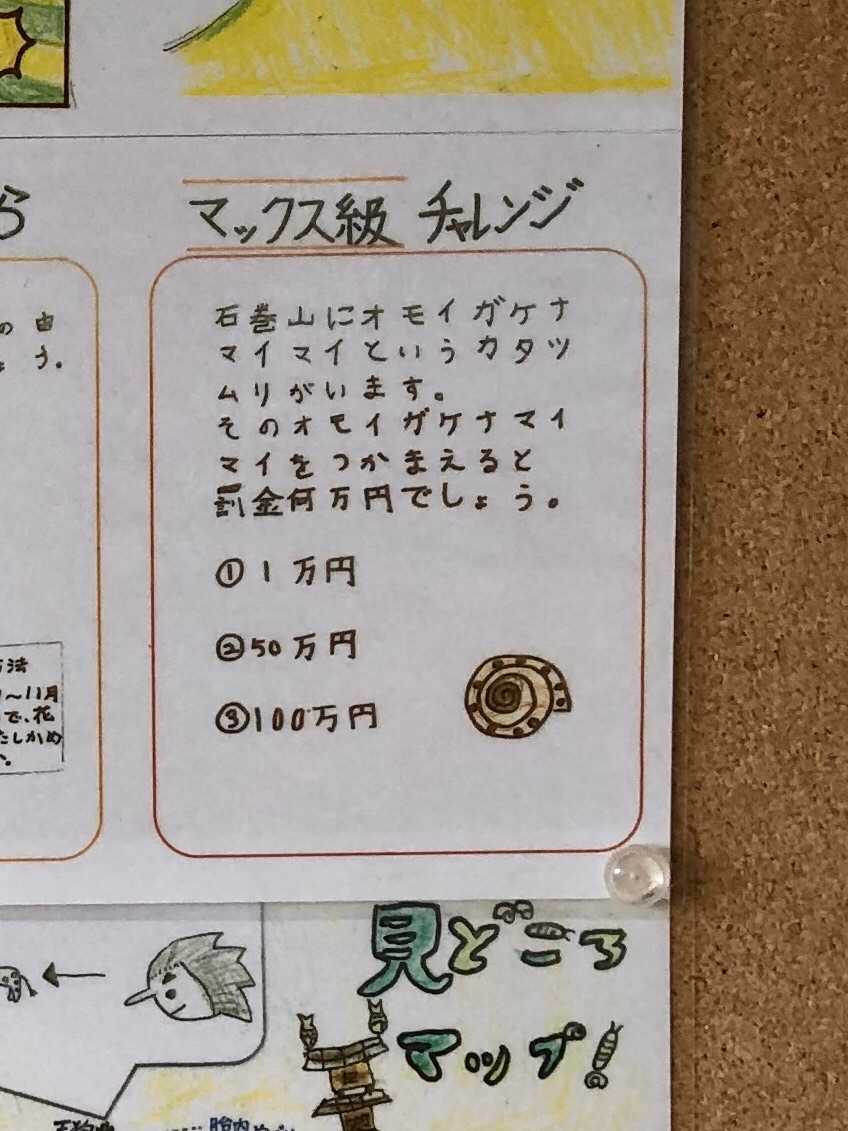 ら
マックス級 チャレンジ
の由
う。
石巻山にオモイガケナ
マイマイというカタツ
ムリがいます。
そのオモイガケナマイ
マイをつかまえると
罰金何万円でしょう。
①1万円
②50万円
③100万円
方法
〜11月
で、花
たしかめ
見どころ
マップ!
胎内